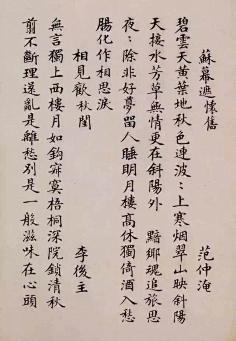 蘇幕遮懷舊
范仲淹
碧雲天黃葉地秋色連波:上寒烟翠山映斜陽
天接水芳草無情更在斜陽外　黯鄉魂追旅思
夜:除非好夢留人睡明月樓高休獨倚酒入愁
腸化作相思淚
相見歡秋閨
李後主
無言獨上西樓月如鉤寂寞梧桐深院鎖清秋
剪不斷理還亂是離愁別是一般滋味在心頭